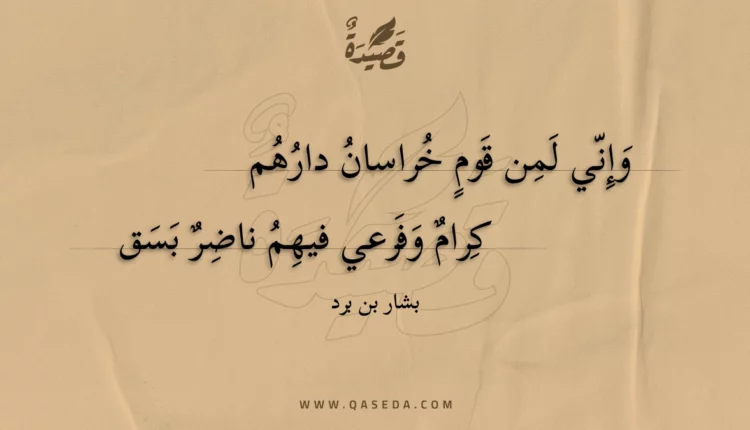 قَصِيدَةٌ
وَإِنّي لَمِن قَومٍ خُراسانُ دارُهُم
كِرامٌ وَفَرَعي فيهِمُ ناضِرٌ بَسَق
بشار بن برد
WWW.QASEDA.COM